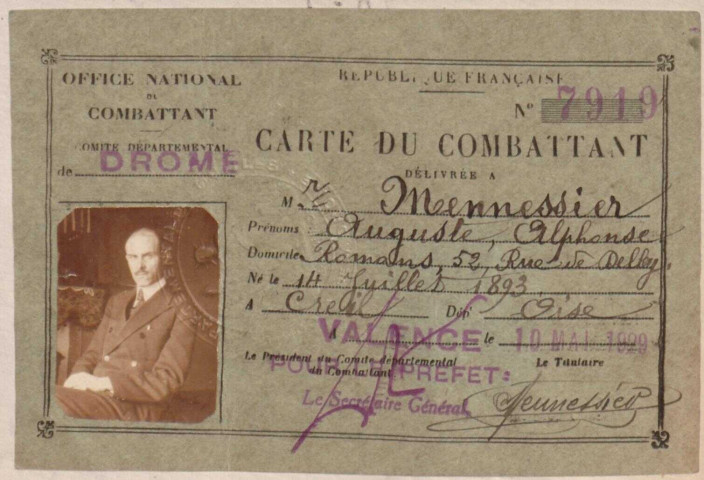 OFFICE NATIONAL
DU
COMBATTANT
COMITÉ DÉPARTEMENTAL
de DROME
RÉPUBLIQUE FRANÇAISE
N° 7919
CARTE DU COMBATTANT
DÉLIVRÉE A
M Mennessier
Prénoms Auguste, Alphonse
Domicile Romans, 52, Rue de
Né le 14 Juillet 1893
A Creil Dép' Oise
A VALENCE le 10 MAI 1929
Le Président du Comité départemental
du Combattant
Le Titulaire
POUR LE PREFET:
Le Secrétaire Général
Mennessier